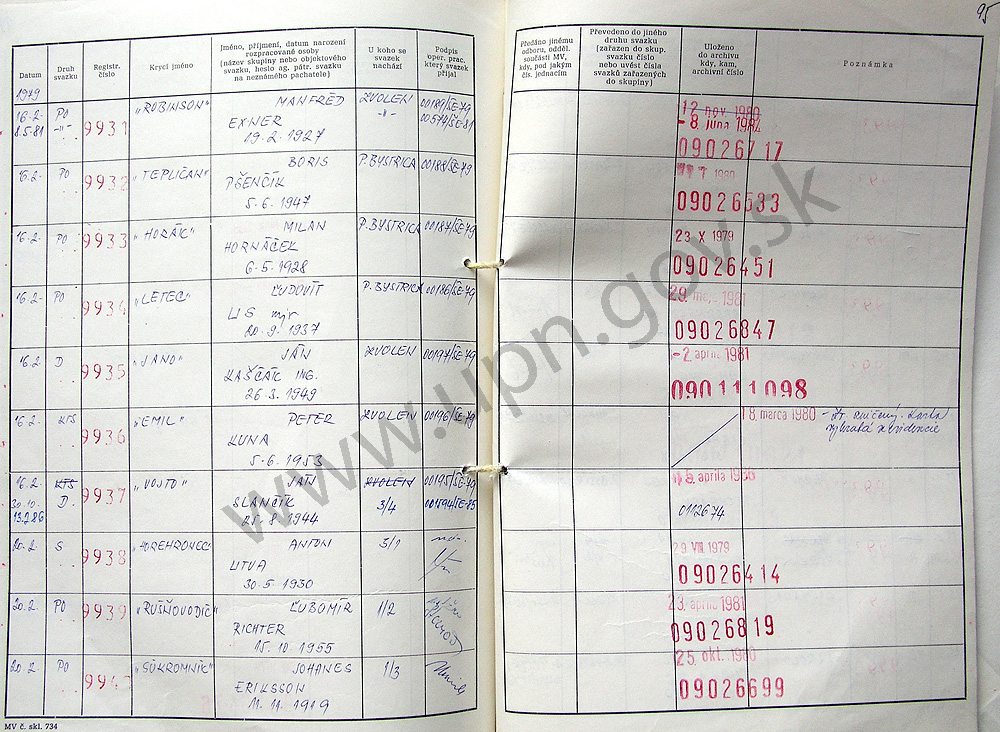 95
Datum
Druh svazku
Registr. číslo
Krycí jméno
Jméno, příjmení, datum narození
rozpracované osoby
(název skupiny nebo objektového
svazku, heslo ag. pátr. svazku
na neznámého pachatele)
U koho se
svazek
nachází
Podpis
oper. prac.
který svazek
přijal
Předáno jinému
odboru, odděl.
součásti MV,
kdy, pod jakým
čís. jednacím
Převedeno do jiného
druhu svazku
(zařazen do skup.
svazku číslo
nebo uvést čísla
svazků zařazených
do skupiny)
Uloženo
do archivu
kdy, kam,
archivní číslo
Poznámka
1979
16.2. PO 9931 "ROBINSON" MANFRÉD ZVOLEN 00189/ŠE-79 12 nov 1980
8.5.81 -"- EXNER -"- 00574/ŠE-81 - 8. júna 1984
19.2.1927 09026717
16.2. PO 9932 "TEPLIČAN" BORIS P.BYSTRICA 00188/ŠE-79 1980
PŠENČÍK
5.6.1947 09026533
16.2. PO 9933 "HORÁK" MILAN P.BYSTRICA 00187/ŠE-79 23 X 1979
HORNÁČEK
6.5.1928 09026451
16.2. PO 9934 "LETEC" ĽUDOVÍT P.BYSTRICA 00186/ŠE-79 29 1981
LIS mjr
20.9.1937 09026847
16.2. D 9935 "JANO" JÁN ZVOLEN 00197/ŠE-79 - 2. apríla 1981
KAŠČÁK ING.
26.3.1949 090111098
16.2. KTS 9936 "EMIL" PETER ZVOLEN 00196/ŠE-79 18 marca 1980 - zničený. karta
KUNA vybratá z evidencie
5.6.1953
16.2. KTS 9937 "VOJTO" JÁN ZVOLEN 00195/ŠE-79 apríla 1986
30.10. D SLANČÍK 3/4 001594/ŠE-85
13.2.86 25.8.1944 0112674
20.2. S 9938 "HOREHRONEC" ANTON 5/1 29 VIII 1979
LITVA
30.5.1930 09026414
20.2. PO 9939 "RUŠŇOVODIČ" ĽUBOMÍR 1/2 23. apríla 1981
RICHTER
15.10.1955 09026819
20.2. PO "SÚKROMNÍK" JOHANES 1/3 25 okt. 1980
ERIKSSON
11.11.1919 09026699
MV č. skl. 734
www.upn.gov.sk